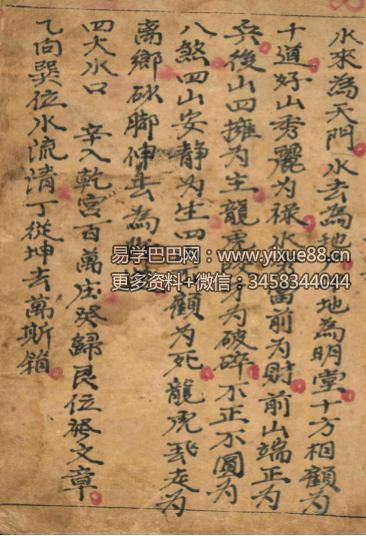 水來為天門水去為地 地為明堂十方相顧為
十道好山秀麗為祿水 當前為財前山端正為
兵後山四擁為主龍虎 才為破碎不正不圓為
八煞四山安靜為生四 顧為死龍虎 走為
离鄉砂脚伸去為
四大水口 辛入乾宮百萬庄癸歸艮位發文章
乙向巽位水流清丁從坤去萬斯箱
易学巴巴网:www.yixue88.cn
更多资料+微信:3458344044